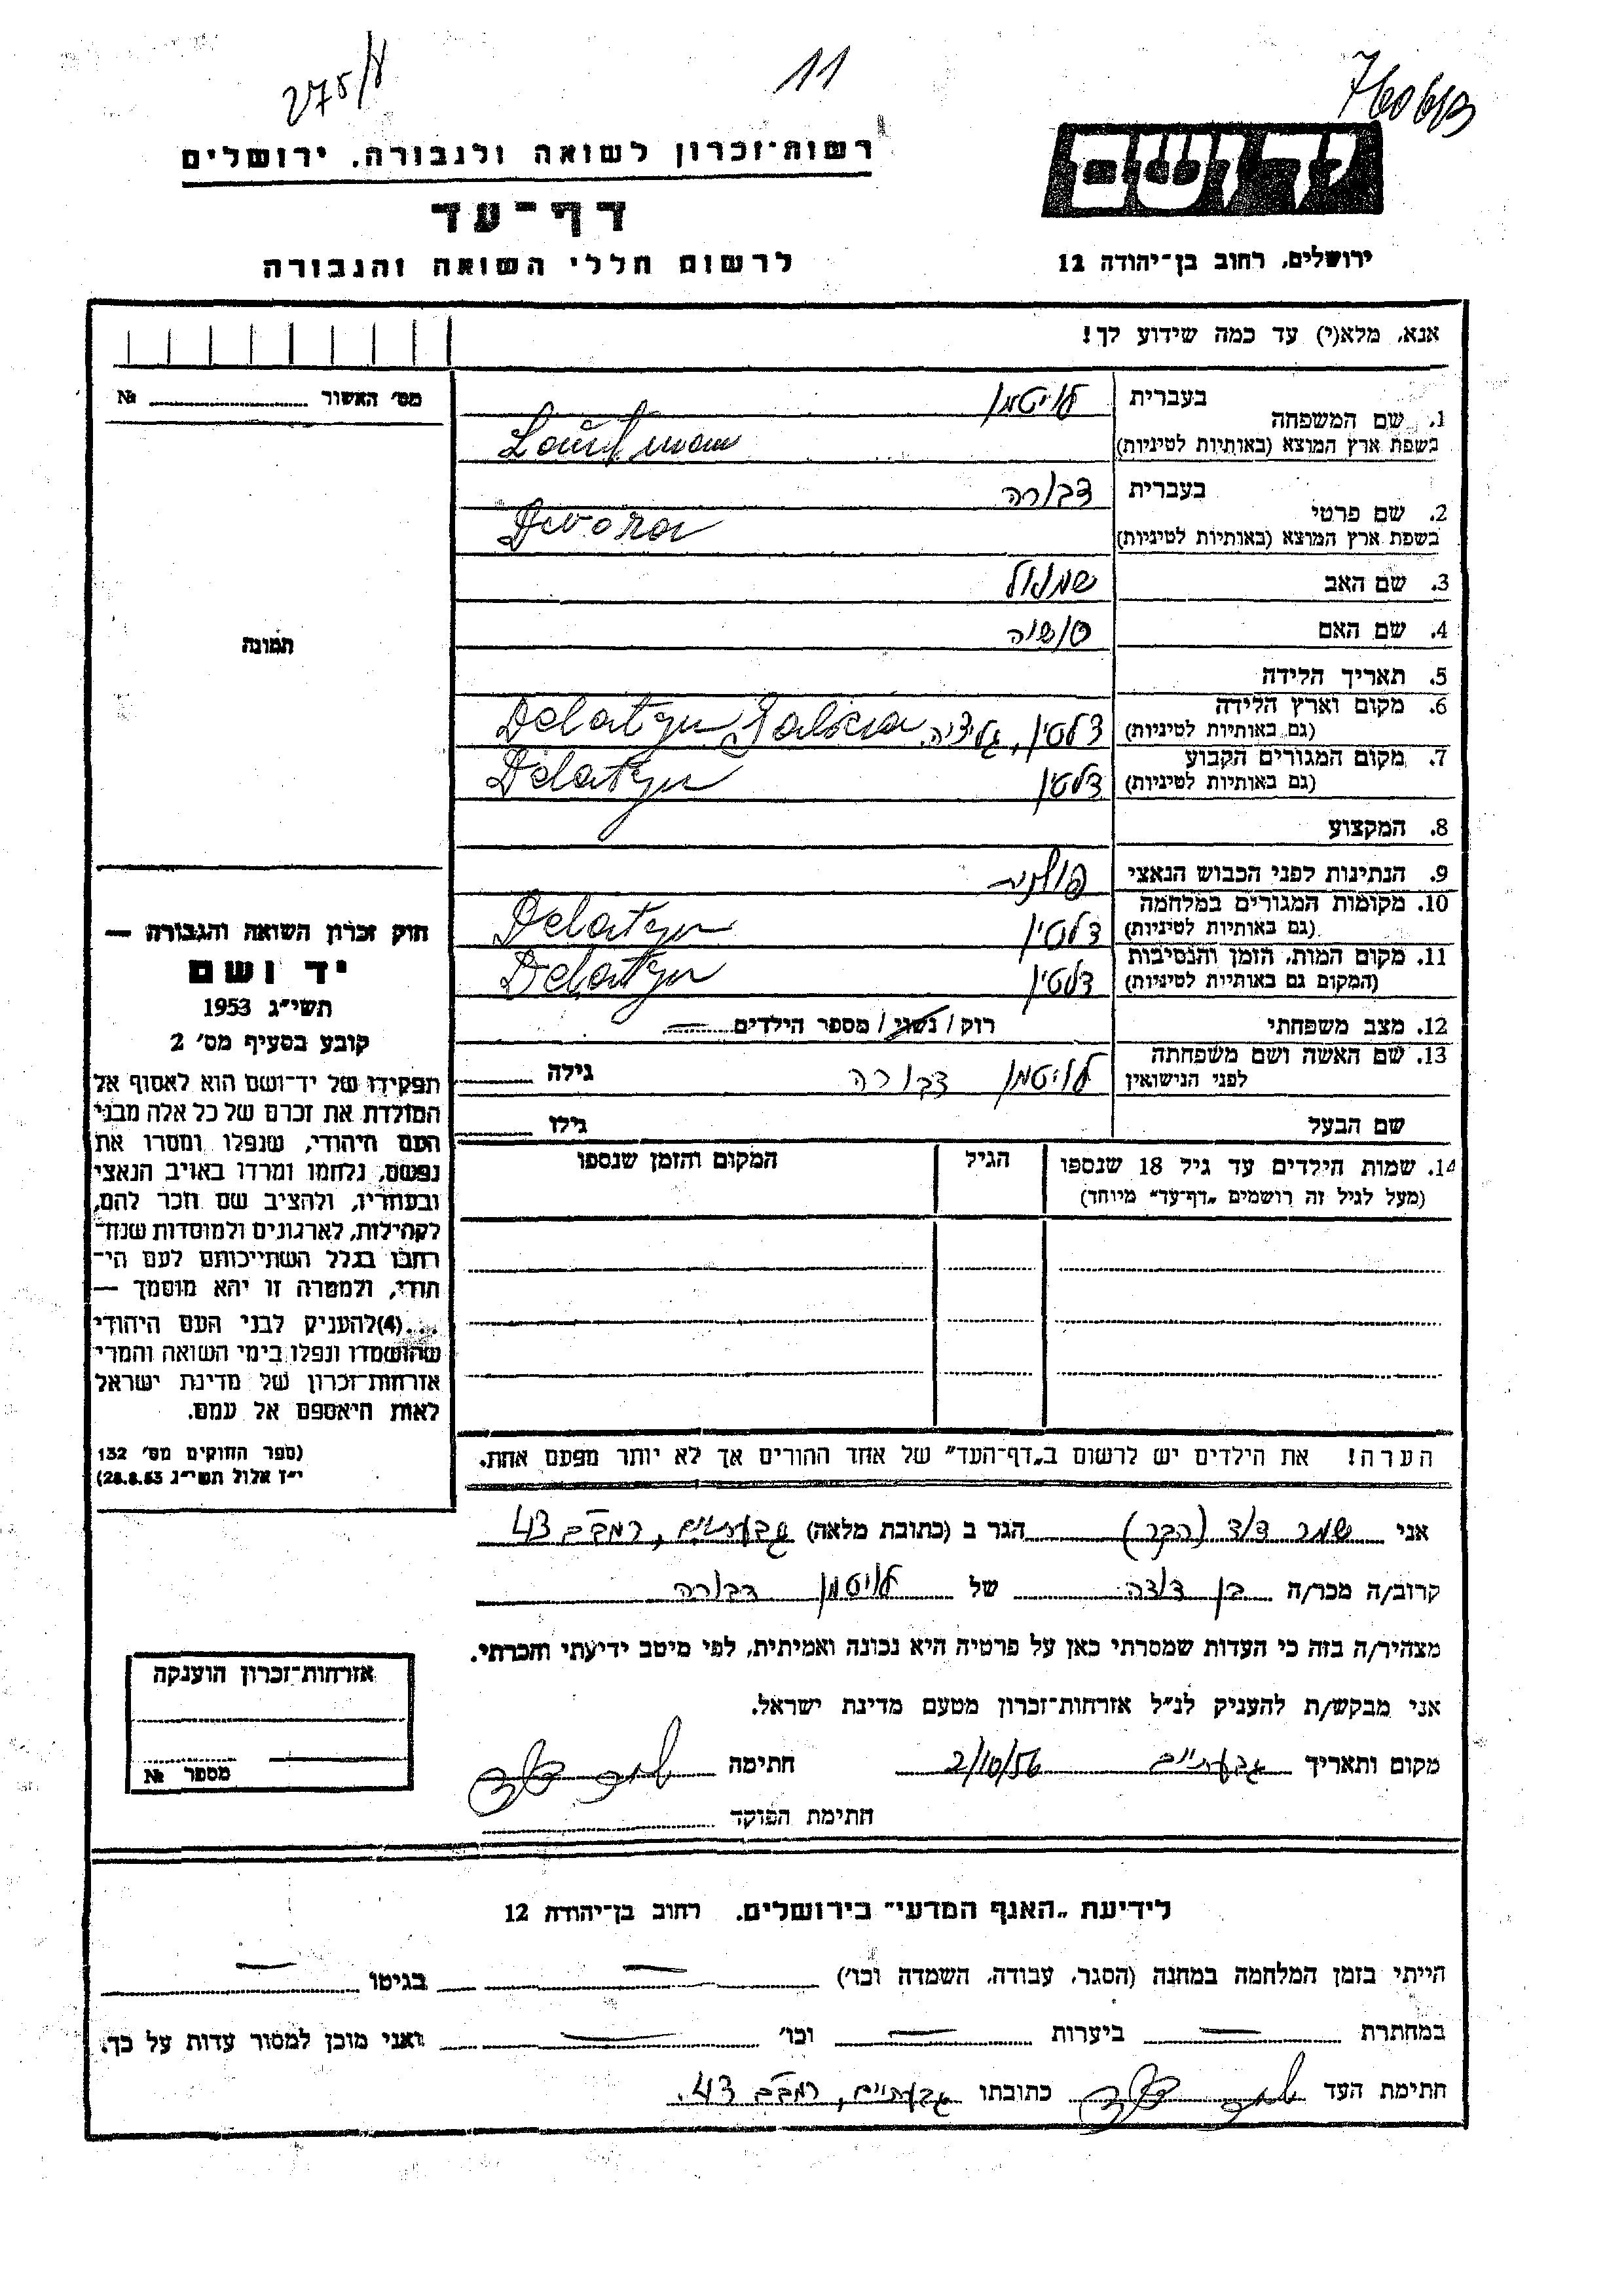 275/ע
11
רשות־זכרון לשואה ולגבורה, ירושלים
יד ושם
דף־עד
לרשום חללי השואה והגבורה
ירושלים, רחוב בן־יהודה 12
אנא, מלא(י) עד כמה שידוע לך!
מס׳ האשור ........ №
1. שם המשפחה
בעברית לויטמן
בשפת ארץ המוצא (באותיות לטיניות)
2. שם פרטי
בעברית דבורה
בשפת ארץ המוצא (באותיות לטיניות) Dwora
3. שם האב שמואל
4. שם האם
5. תאריך הלידה
6. מקום וארץ הלידה
(גם באותיות לטיניות) דלטין, גליציה. Delatyn Galicia
7. מקום המגורים הקבוע
(גם באותיות לטיניות) דלטין Delatyn
8. המקצוע
9. הנתינות לפני הכבוש הנאצי פולנית
10. מקומות המגורים במלחמה
(גם באותיות לטיניות) דלטין Delatyn
11. מקום המות, הזמן והנסיבות
(המקום גם באותיות לטיניות) דלטין Delatyn
12. מצב משפחתי רוק / נשוי / מספר הילדים —
13. שם האשה ושם משפחתה
לפני הנישואין לויטמן דבורה גילה
שם הבעל גילו
14. שמות הילדים עד גיל 18 שנספו
(מעל לגיל זה רושמים „דף־עד״ מיוחד)
הגיל
המקום והזמן שנספו
תמונה
חוק זכרון השואה והגבורה —
יד ושם
תשי״ג 1953
קובע בסעיף מס׳ 2
תפקידו של יד־ושם הוא לאסוף אל
המולדת את זכרם של כל אלה מבני
העם היהודי, שנפלו ומסרו את
נפשם, נלחמו ומרדו באויב הנאצי
ובעוזריו, ולהציב שם וזכר להם,
לקהילות, לארגונים ולמוסדות שנח־
רבו בגלל השתייכותם לעם הי־
הודי, ולמטרה זו יהא מוסמך —
...(4) להעניק לבני העם היהודי
שהושמדו ונפלו בימי השואה והמרי
אזרחות־זכרון של מדינת ישראל
לאות היאספם אל עמם.
(ספר החוקים מס׳ 132
י״ז אלול תשי״ג 28.8.53)
הערה! את הילדים יש לרשום ב„דף־העד״ של אחד ההורים אך לא יותר מפעם אחת.
אני שמר דוד (הבר) הגר ב (כתובת מלאה) גבעתיים, רמב״ם 43
קרוב/ה מכר/ה בן דודה של לויטמן דבורה
מצהיר/ה בזה כי העדות שמסרתי כאן על פרטיה היא נכונה ואמיתית, לפי מיטב ידיעתי והכרתי.
אני מבקש/ת להעניק לנ״ל אזרחות־זכרון מטעם מדינת ישראל.
מקום ותאריך גבעתיים 2/10/56 חתימה שמר דוד
חתימת הפוקד
אזרחות־זכרון הוענקה
מספר №
לידיעת „האגף המדעי״ בירושלים, רחוב בן־יהודה 12
הייתי בזמן המלחמה במחנה (הסגר, עבודה, השמדה וכו׳) — בגיטו —
במחתרת — ביערות — וכו׳ — ואני מוכן למסור עדות על כך.
חתימת העד שמר דוד כתובתו גבעתיים, רמב״ם 43.